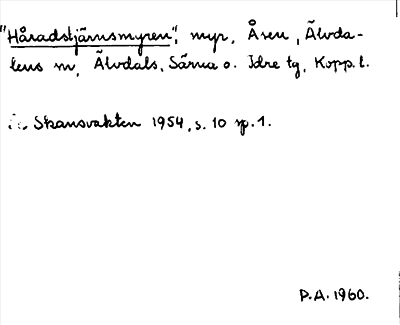 "Håradstjärnsmyren", myr, Åsen, Älvda-
lens sn, Älvdals, Särna o. Idre tg, Kopp. l.
Skansvakten 1954, s. 10 sp. 1.
P.A. 1960.